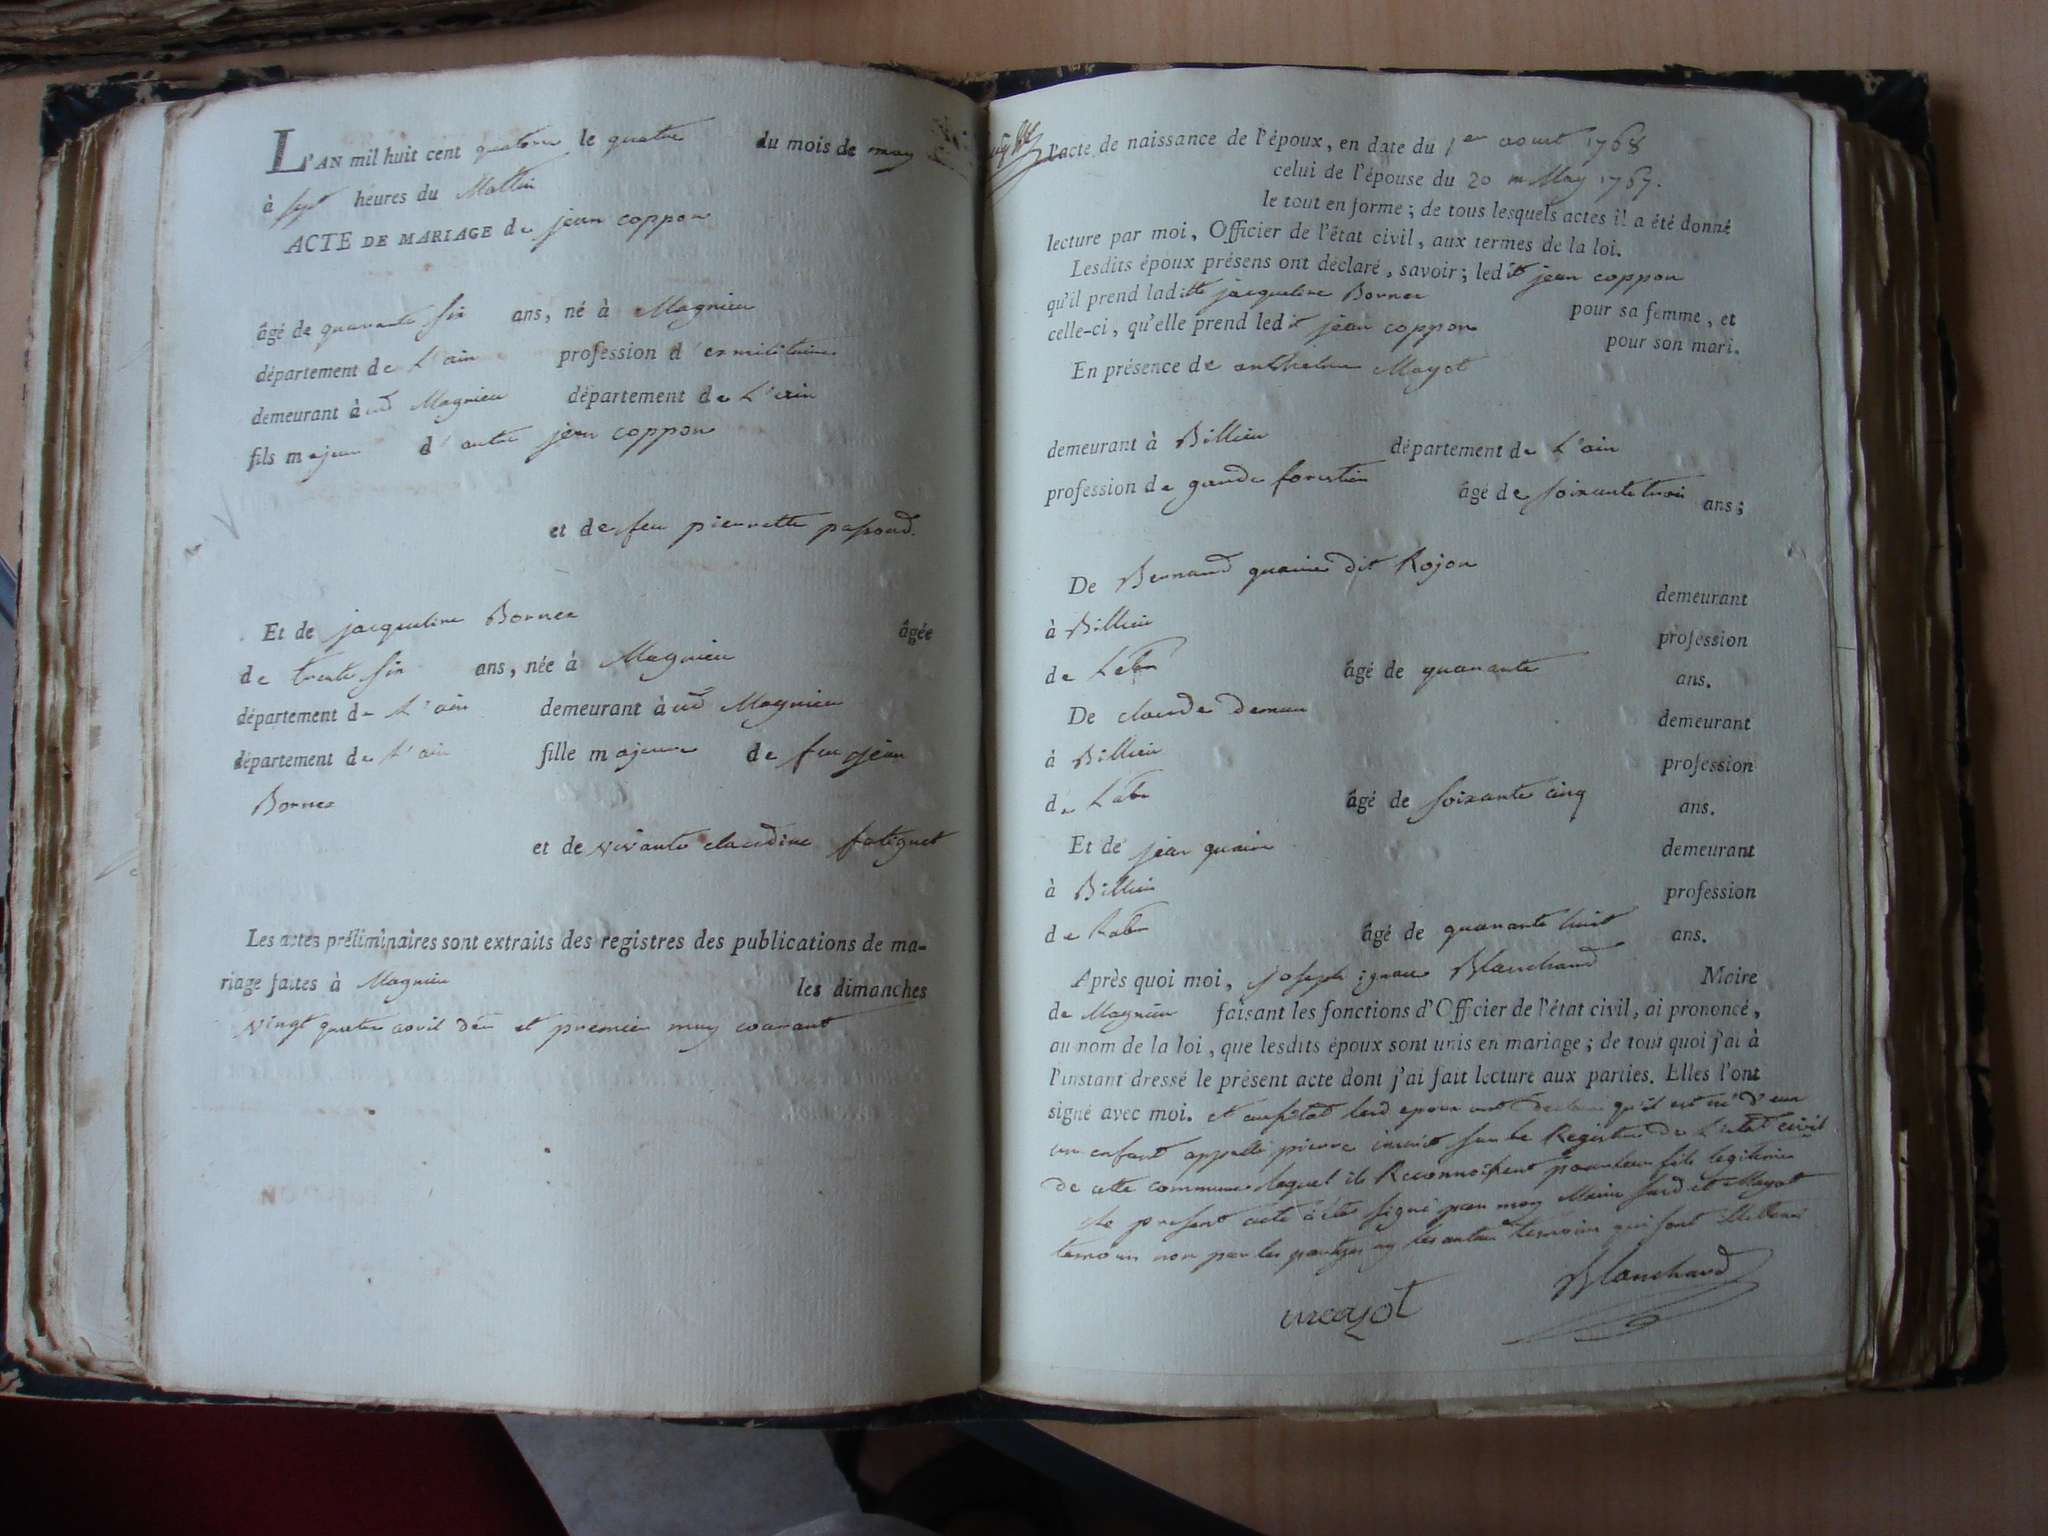 L'AN mil huit cent quatorze le quatre du mois de may
à sept heures du Mattin
ACTE DE MARIAGE de jean coppon
âgé de quarante six ans, né à Magnieu
département de L'ain profession d'exmilitaire
demeurant à ud Magnieu département de L'ain
fils majeur d'autre jean coppon
et de feu pierrette passoud.
Et de jacqueline Bornex âgée
de trente six ans, née à Magnieu
département de L'ain demeurant à ud Magnieu
département de L'ain fille majeure de feu jean
Bornex
et de vivante claudine fatiguet
Les actes préliminaires sont extraits des registres des publications de ma-
riage faites à Magnieu les dimanches
vingt quatre avril der et premier may courant
l'acte de naissance de l'époux, en date du 1er aoust 1768
celui de l'épouse du 20 m May 1767.
le tout en forme; de tous lesquels actes il a été donné
lecture par moi, Officier de l'état civil, aux termes de la loi.
Lesdits époux présens ont déclaré, savoir; ledit jean coppon
qu'il prend laditte jacqueline Bornex pour sa femme, et
celle-ci, qu'elle prend ledit jean coppon pour son mari.
En présence de anthelme Mayot
demeurant à Billieu département de L'ain
profession de garde forestier âgé de soixante trois ans;
De Bernard quinier dit Rojon demeurant
à Billieu profession
de Labr âgé de quarante ans.
De claude demeur demeurant
à Billieu profession
de Labr âgé de soixante cinq ans.
Et de jean quinier demeurant
à Billieu profession
de Labr âgé de quarante huit ans.
Après quoi moi, joseph ignace Blanchard Maire
de Magnieu faisant les fonctions d'Officier de l'état civil, ai prononcé,
au nom de la loi, que lesdits époux sont unis en mariage; de tout quoi j'ai à
l'instant dressé le présent acte dont j'ai fait lecture aux parties. Elles l'ont
signé avec moi. et aussitot lesd epoux ont declaré qu'il est né d'eux
un enfant appellé pierre inscrit sur le Registre de L'etat civil
de cette commune lequel ils Reconnoissent pour leur fils legitime
le present acte a été signé par moy Maire susd et Mayot
temoin non par les parties ny les autres temoins qui sont illeterés
mayot
Blanchard